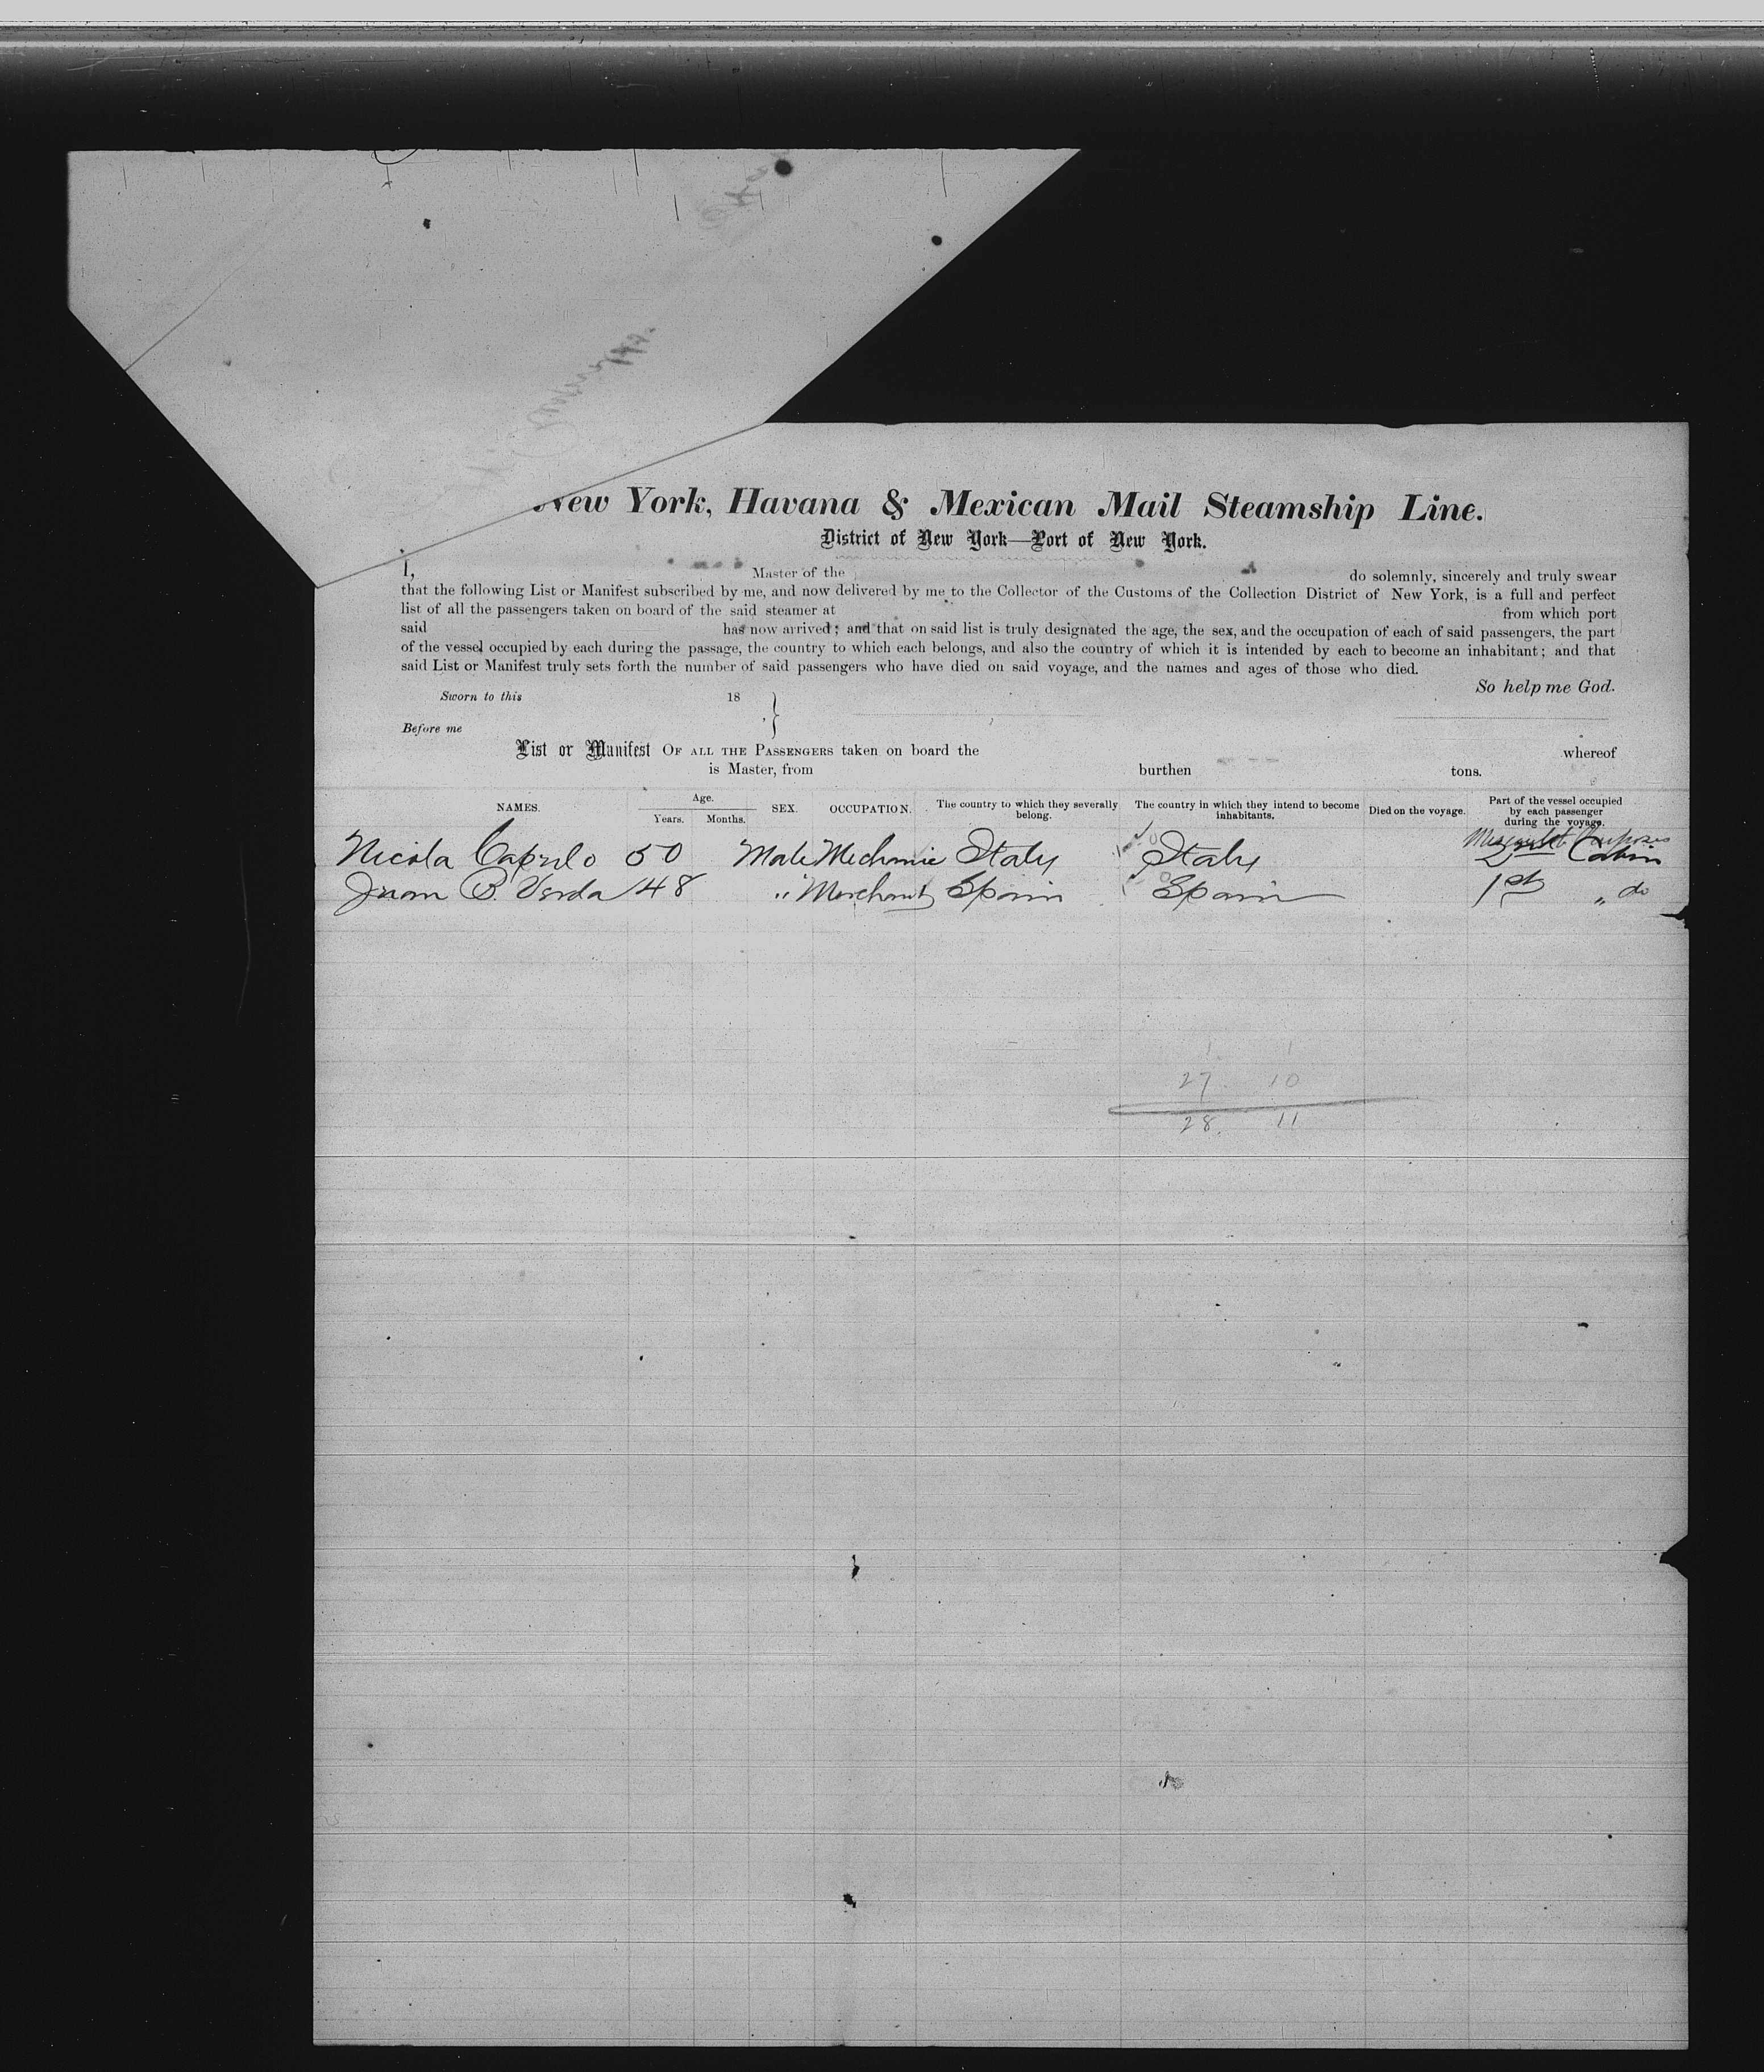 New York, Havana & Mexican Mail Steamship Line.
District of New York—Port of New York.
I, Master of the do solemnly, sincerely and truly swear
that the following List or Manifest subscribed by me, and now delivered by me to the Collector of the Customs of the Collection District of New York, is a full and perfect
list of all the passengers taken on board of the said steamer at from which port
said has now arrived; and that on said list is truly designated the age, the sex, and the occupation of each of said passengers, the part
of the vessel occupied by each during the passage, the country to which each belongs, and also the country of which it is intended by each to become an inhabitant; and that
said List or Manifest truly sets forth the number of said passengers who have died on said voyage, and the names and ages of those who died.
So help me God.
Sworn to this 18
Before me
List or Manifest OF ALL THE PASSENGERS taken on board the whereof
is Master, from burthen tons.
NAMES. Age. Years. Months. SEX. OCCUPATION. The country to which they severally belong. The country in which they intend to become inhabitants. Died on the voyage. Part of the vessel occupied by each passenger during the voyage.
Nicola 50 Male Mechanic Italy Italy 2nd Cabin
Juan B. 48 " Merchant Spain Spain 1st " do
1 1
27 10
28 11